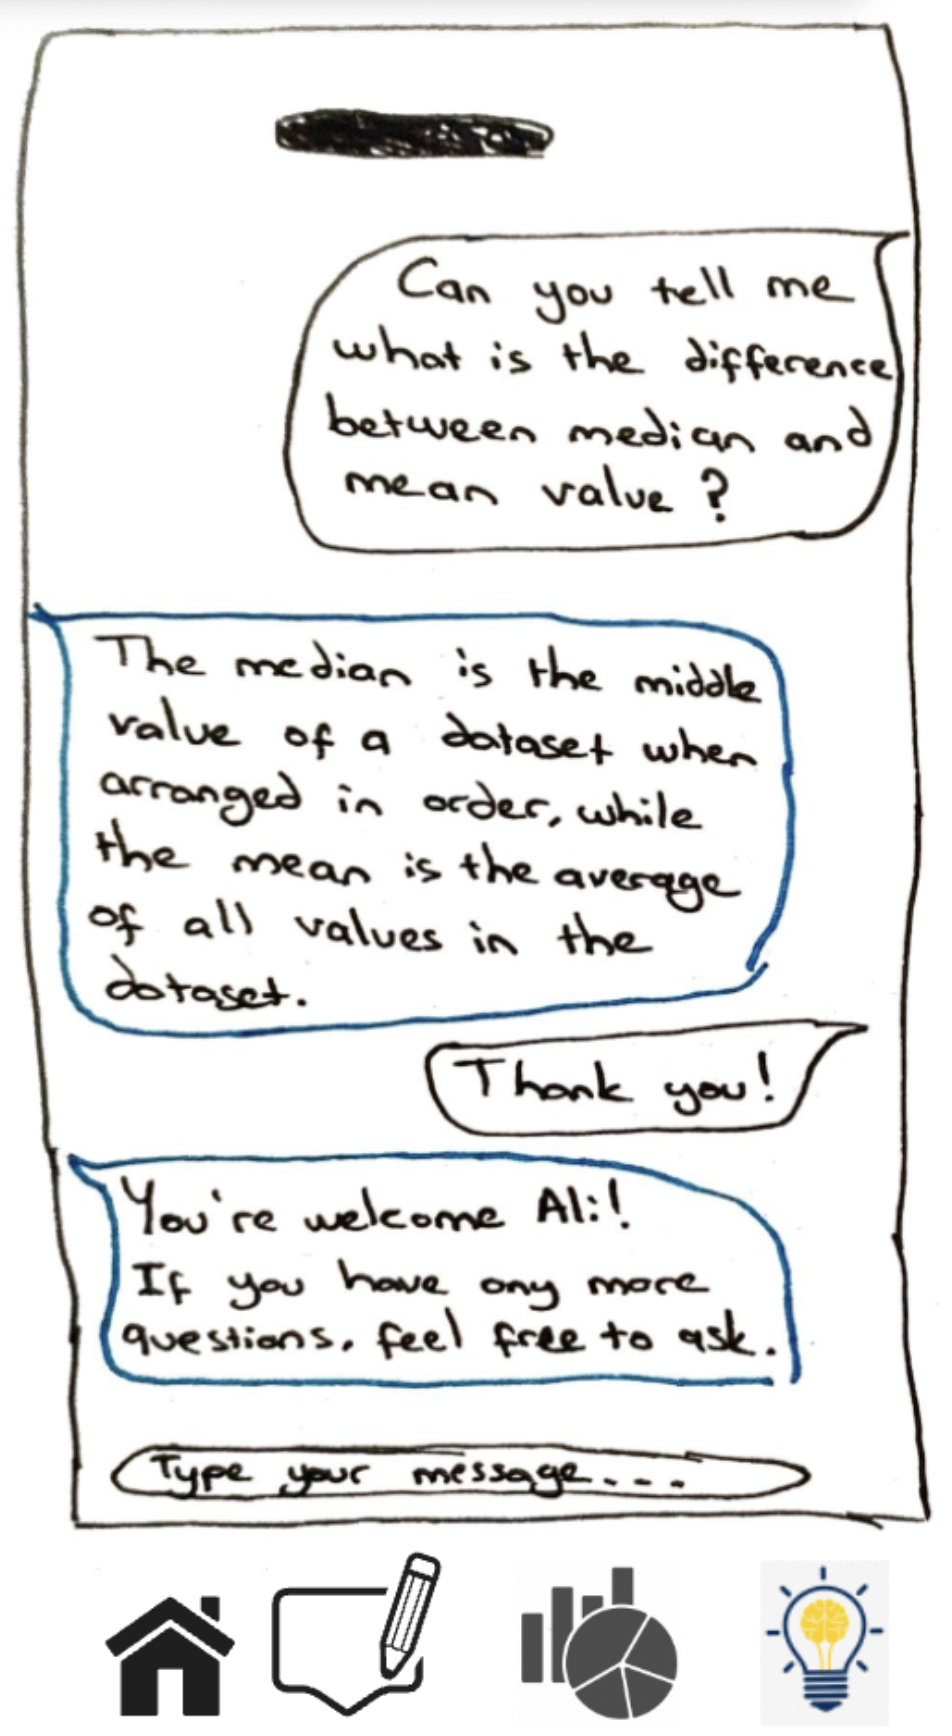 Can you tell me
what is the difference
between median and
mean value ?
The median is the middle
value of a dataset when
arranged in order, while
the mean is the average
of all values in the
dataset.
Thank you!
You're welcome Ali!
If you have any more
questions, feel free to ask.
Type your message...